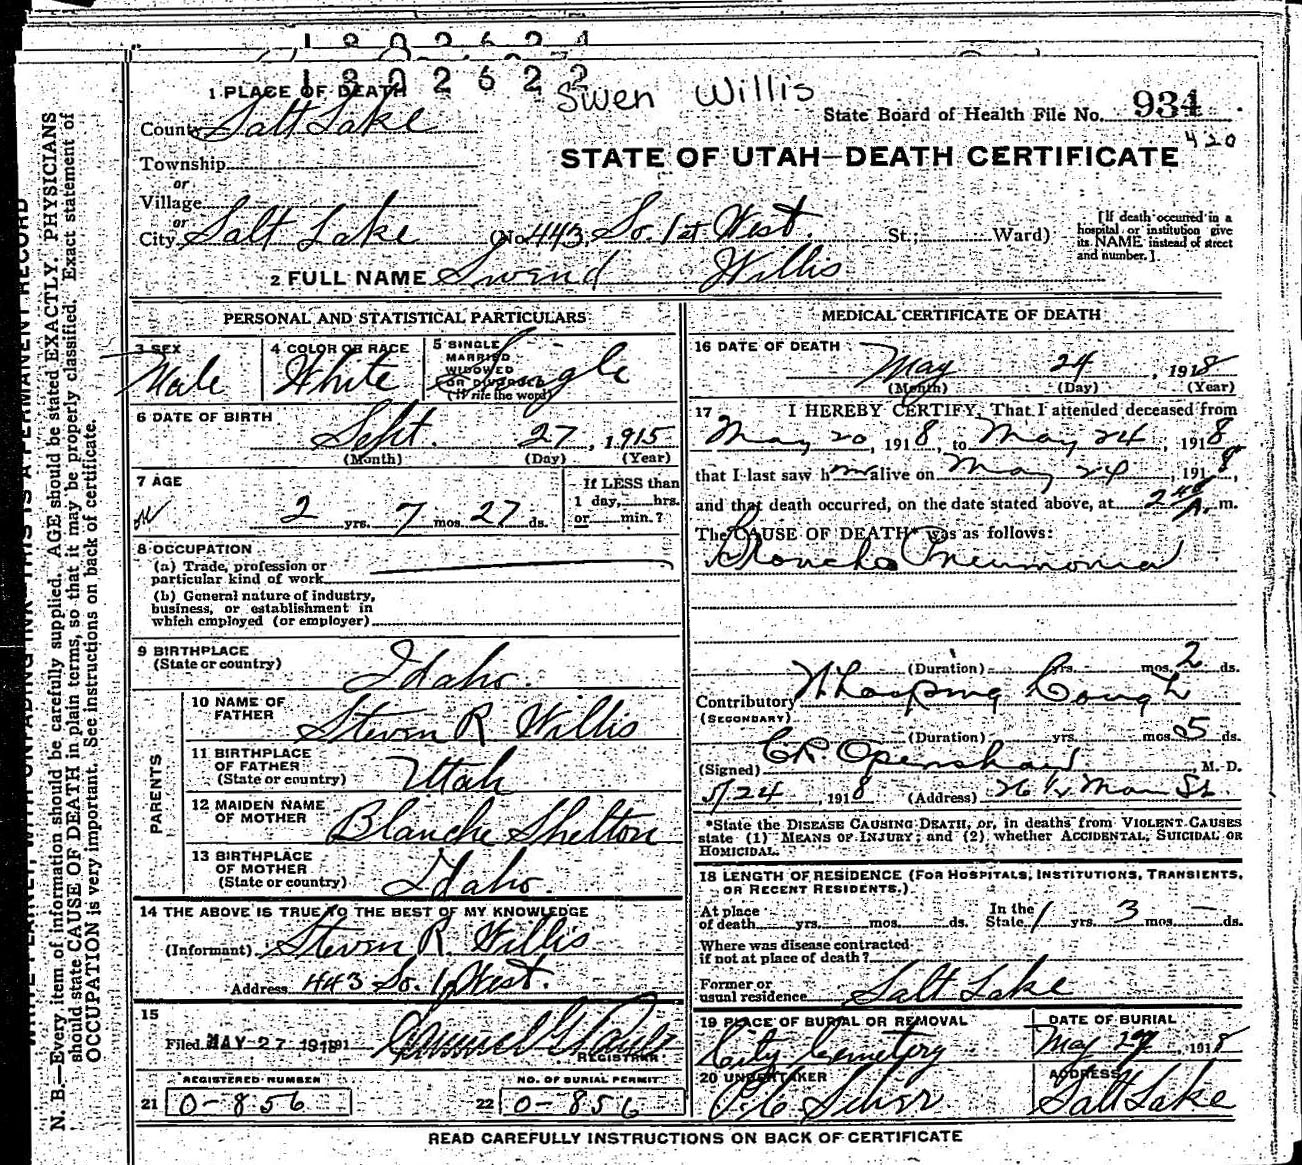 1802624
1802622
Swen Willis
1 PLACE OF DEATH
County Salt Lake
State Board of Health File No. 934
420
Township
or
Village
or
City Salt Lake (No. 443 So. 1st West. St.; Ward)
STATE OF UTAH—DEATH CERTIFICATE
[If death occurred in a hospital or institution give its NAME instead of street and number.]
2 FULL NAME Swend Willis
PERSONAL AND STATISTICAL PARTICULARS
3 SEX
Male
4 COLOR OR RACE
White
5 SINGLE
MARRIED
WIDOWED
OR DIVORCED
(Write the word)
Single
6 DATE OF BIRTH
Sept. 27, 1915
(Month) (Day) (Year)
7 AGE
2 yrs. 7 mos. 27 ds.
If LESS than
1 day, hrs.
or min.?
8 OCCUPATION
(a) Trade, profession or
particular kind of work
(b) General nature of industry,
business, or establishment in
which employed (or employer)
9 BIRTHPLACE
(State or country)
Idaho.
PARENTS
10 NAME OF
FATHER
Steven R Willis
11 BIRTHPLACE
OF FATHER
(State or country)
Utah
12 MAIDEN NAME
OF MOTHER
Blanche Shelton
13 BIRTHPLACE
OF MOTHER
(State or country)
Idaho.
14 THE ABOVE IS TRUE TO THE BEST OF MY KNOWLEDGE
(Informant) Steven R. Willis
Address 443 So. 1 West.
15
Filed MAY 27 1918 191
REGISTRAR
REGISTERED NUMBER
21 0-856
NO. OF BURIAL PERMIT
22 0-856
MEDICAL CERTIFICATE OF DEATH
16 DATE OF DEATH
May 24, 1918
(Month) (Day) (Year)
17 I HEREBY CERTIFY, That I attended deceased from
May 20, 1918, to May 24, 1918
that I last saw him alive on May 24, 1918,
and that death occurred, on the date stated above, at 2 40 A. m.
The CAUSE OF DEATH* was as follows:
Broncho Pneumonia
(Duration) yrs. mos. 2 ds.
Contributory Whooping Cough
(SECONDARY)
(Duration) yrs. mos. 5 ds.
(Signed) C.R. Openshaw, M. D.
5/24, 1918 (Address) 26 1/2 Main St.
*State the DISEASE CAUSING DEATH, or, in deaths from VIOLENT CAUSES
state (1) MEANS OF INJURY; and (2) whether ACCIDENTAL, SUICIDAL OR
HOMICIDAL.
18 LENGTH OF RESIDENCE (FOR HOSPITALS, INSTITUTIONS, TRANSIENTS,
OR RECENT RESIDENTS.)
At place
of death yrs. mos. ds.
In the
State 1 yrs. 3 mos. — ds.
Where was disease contracted
if not at place of death?
Former or
usual residence Salt Lake
19 PLACE OF BURIAL OR REMOVAL
City Cemetery
DATE OF BURIAL
May 27, 1918
20 UNDERTAKER
ADDRESS
Salt Lake
READ CAREFULLY INSTRUCTIONS ON BACK OF CERTIFICATE
THIS IS A PERMANENT RECORD
N. B.—Every item of information should be carefully supplied. AGE should be stated EXACTLY. PHYSICIANS
should state CAUSE OF DEATH in plain terms, so that it may be properly classified. Exact statement of
OCCUPATION is very important. See instructions on back of certificate.